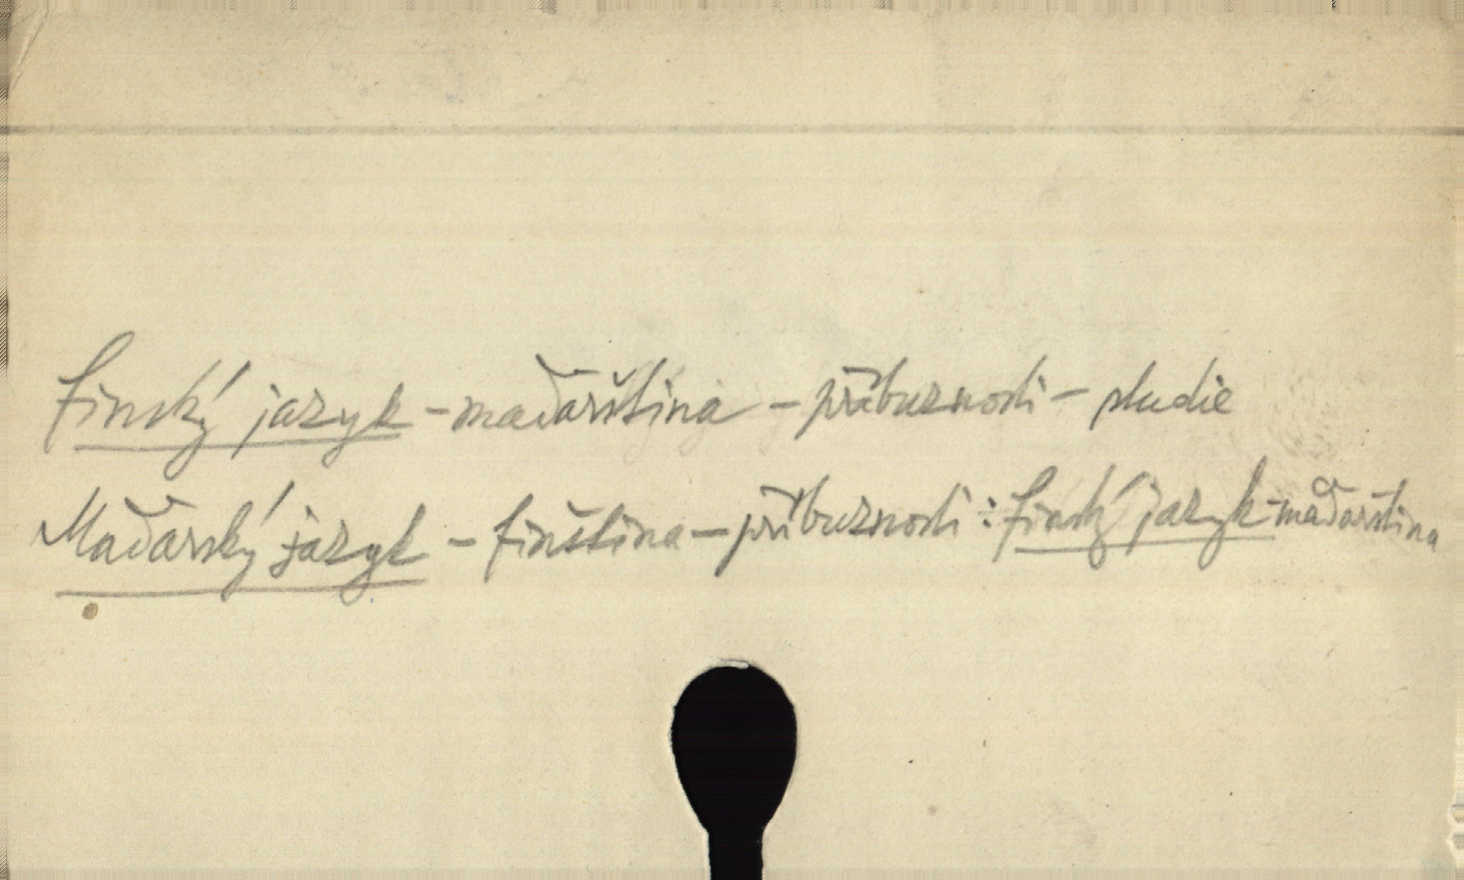 Finský jazyk - maďarština - příbuznosti - studie
Maďarský jazyk - finština - příbuznosti : Finský jazyk - maďarština